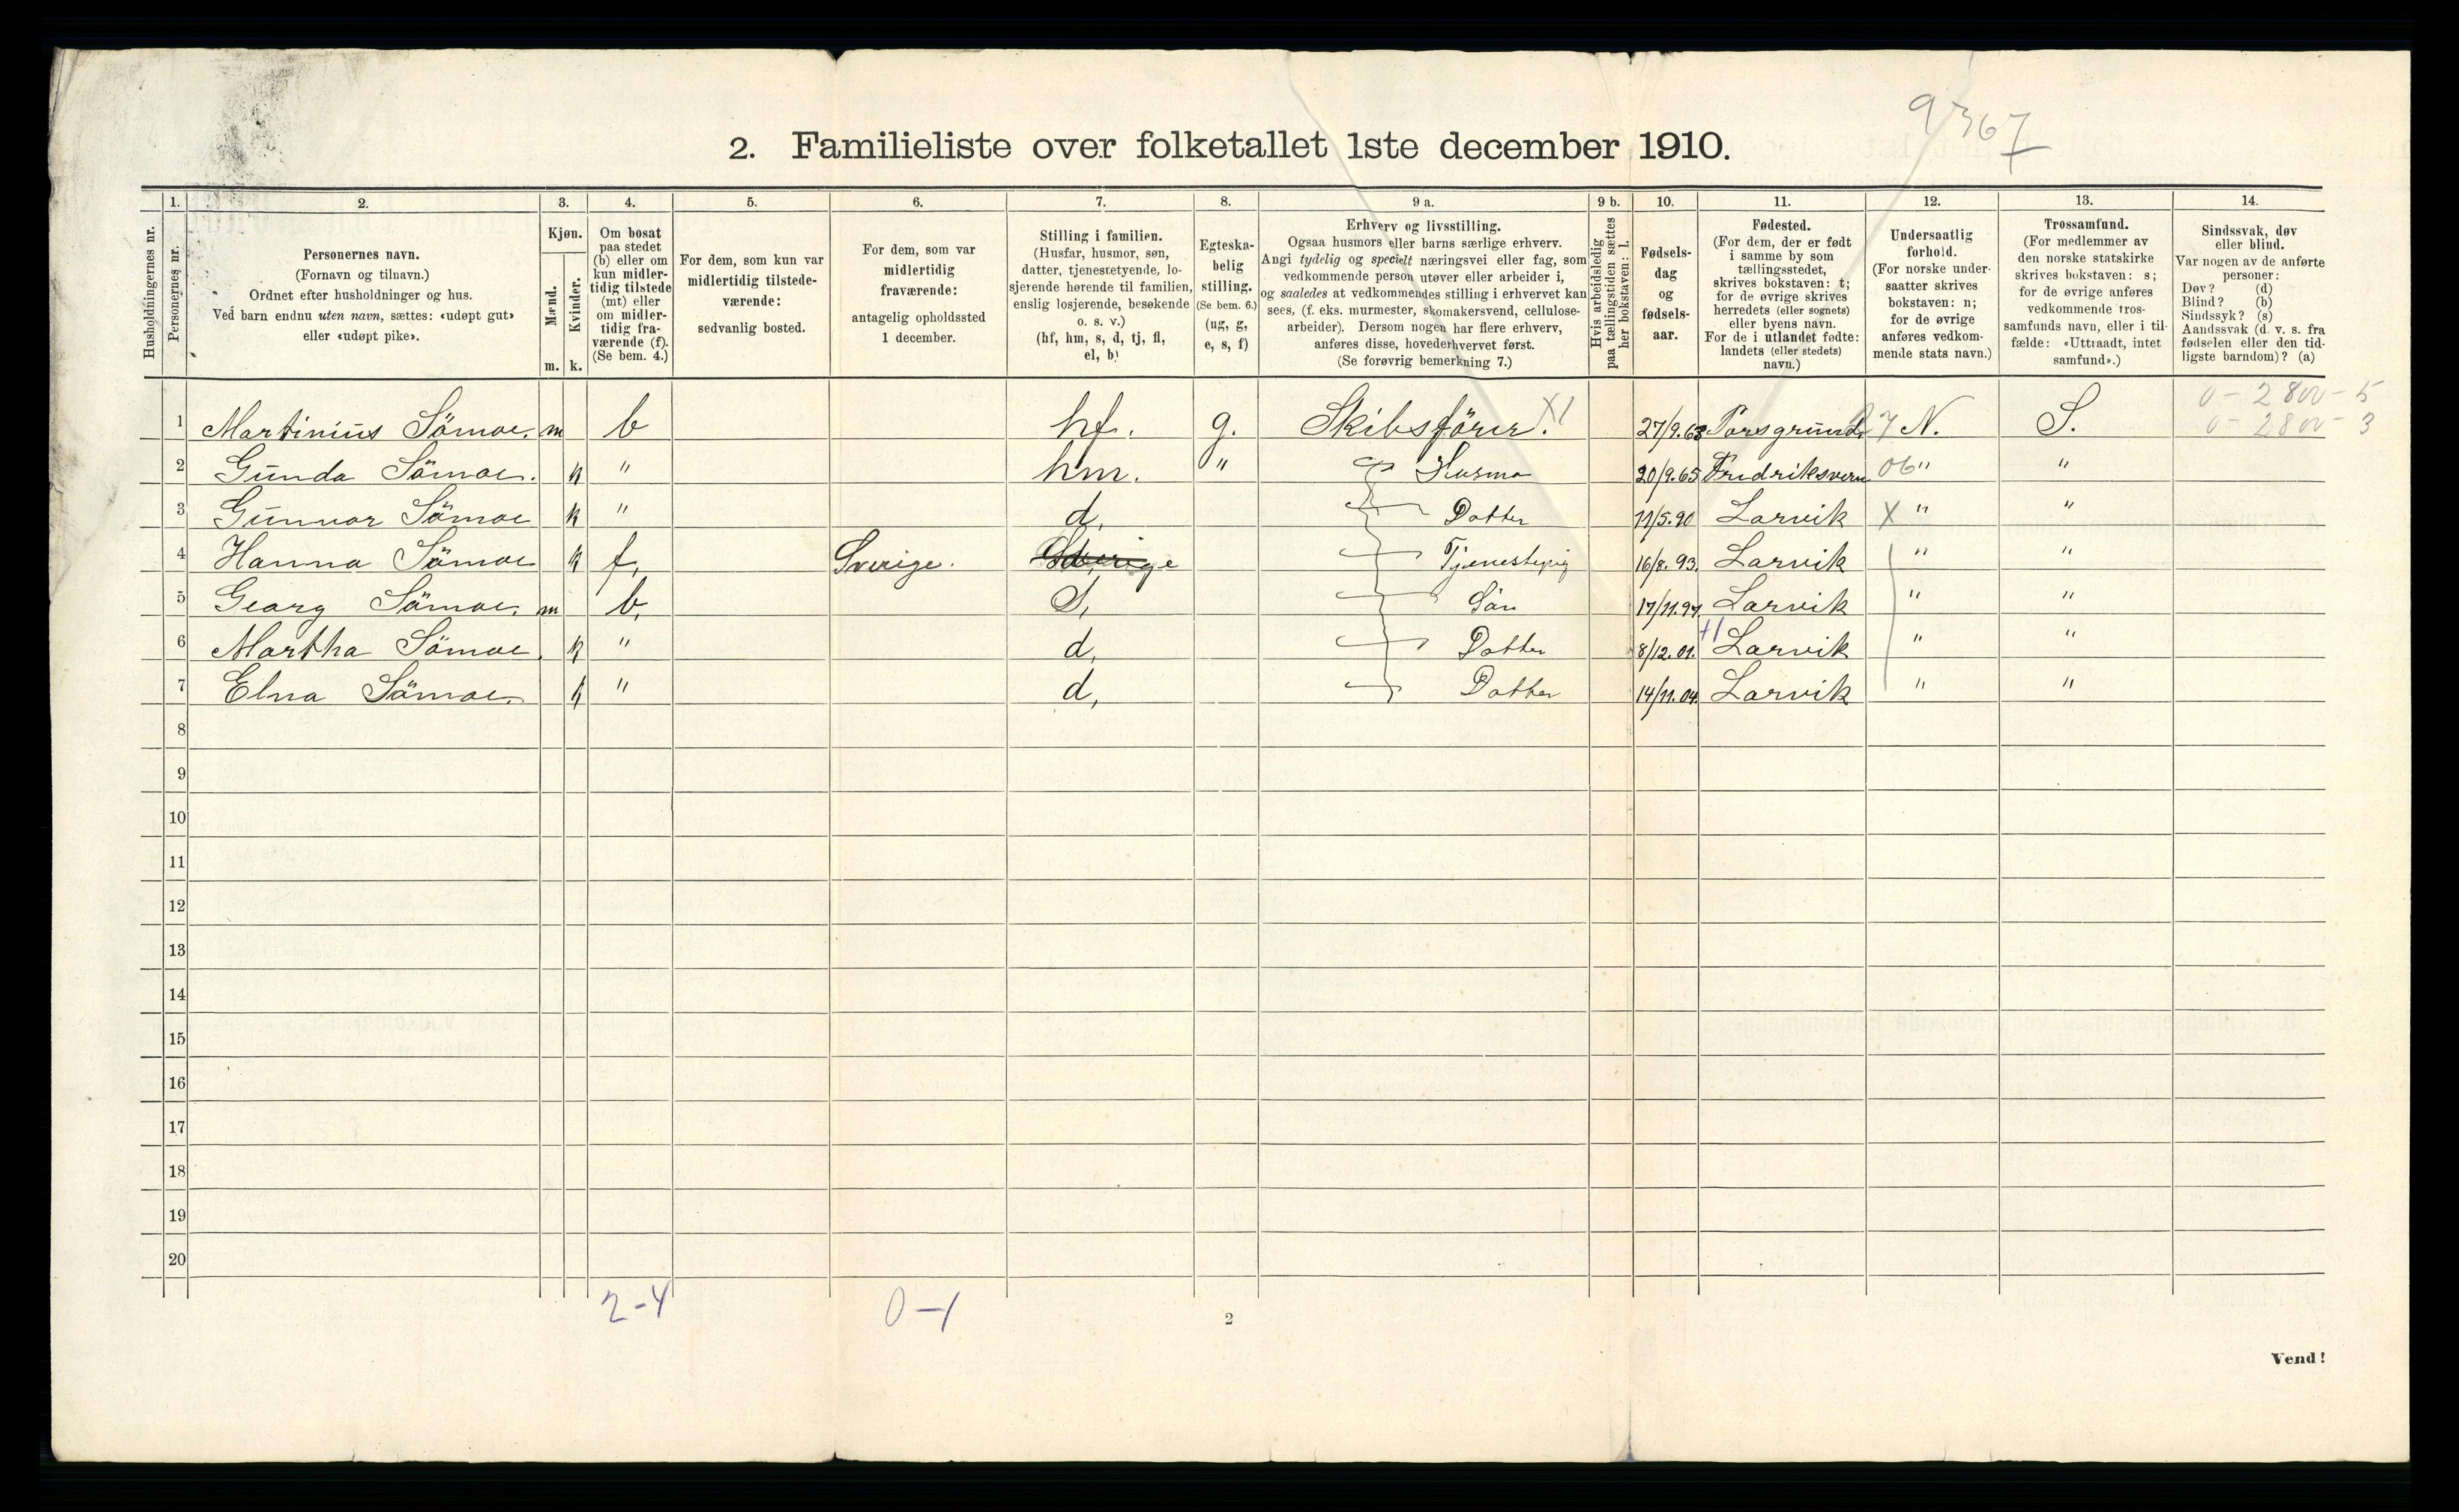 9367
2. Familieliste over folketallet 1ste december 1910.
1. 2. 3. 4. 5. 6. 7. 8. 9 a. 9 b. 10. 11. 12. 13. 14.
Husholdningernes nr.
Personernes nr.
Personernes navn.
(Fornavn og tilnavn.)
Ordnet efter husholdninger og hus.
Ved barn endnu uten navn, sættes: «udøpt gut»
eller «udøpt pike».
Kjøn.
Mænd.
m.
Kvinder.
k.
Om bosat
paa stedet
(b) eller om
kun midler-
tidig tilstede
(mt) eller
om midler-
tidig fra-
værende (f).
(Se bem. 4.)
For dem, som kun var
midlertidig tilstede-
værende:
sedvanlig bosted.
For dem, som var
midlertidig
fraværende:
antagelig opholdssted
1 december.
Stilling i familien.
(Husfar, husmor, søn,
datter, tjenestetyende, lo-
sjerende hørende til familien,
enslig losjerende, besøkende
o. s. v.)
(hf, hm, s, d, tj, fl,
el, b)
Egteska-
belig
stilling.
(Se bem. 6.)
(ug, g,
e, s, f)
Erhverv og livsstilling.
Ogsaa husmors eller barns særlige erhverv.
Angi tydelig og specielt næringsvei eller fag, som
vedkommende person utøver eller arbeider i,
og saaledes at vedkommendes stilling i erhvervet kan
sees, (f. eks. murmester, skomakersvend, cellulose-
arbeider). Dersom nogen har flere erhverv,
anføres disse, hovederhvervet først.
(Se forøvrig bemerkning 7.)
Hvis arbeidsledig
paa tællingstiden sættes
her bokstaven: l.
Fødsels-
dag
og
fødsels-
aar.
Fødested.
(For dem, der er født
i samme by som
tællingsstedet,
skrives bokstaven: t;
for de øvrige skrives
herredets (eller sognets)
eller byens navn.
For de i utlandet fødte:
landets (eller stedets)
navn.)
Undersaatlig
forhold.
(For norske under-
saatter skrives
bokstaven: n;
for de øvrige
anføres vedkom-
mende stats navn.)
Trossamfund.
(For medlemmer av
den norske statskirke
skrives bokstaven: s;
for de øvrige anføres
vedkommende tros-
samfunds navn, eller i til-
fælde: «Uttraadt, intet
samfund».)
Sindssvak, døv
eller blind.
Var nogen av de anførte
personer:
Døv? (d)
Blind? (b)
Sindssyk? (s)
Aandssvak (d. v. s. fra
fødselen eller den tid-
ligste barndom)? (a)
0 - 2800 - 5
0 - 2800 - 3
1 Martinius Sömoe. m b hf. g. Skibsförer. X1 27/9.63 Porsgrund N. S.
2 Gunda Sömoe. k " hm. " Husmo 20/9.65 Fredriksvern 06 " "
3 Gunvor Sömoe k " d. Datter 11/5.90 Larvik X " "
4 Hanna Sömoe k f. Sverige. 16/8.93. Larvik " "
5 Georg Sömoe. m b. S, Sön 17/11.97. Larvik " "
6 Martha Sömoe. k " d. Datter 8/12.01. Larvik " "
7 Elna Sömoe. k " d, Datter 14/11.04. Larvik " "
8
9
10
11
12
13
14
15
16
17
18
19
20
2-4 0-1
2
Vend!